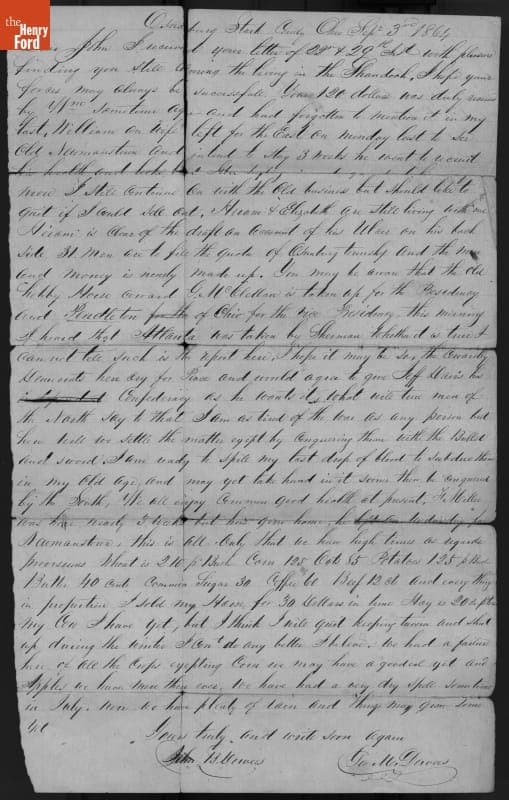 The Henry Ford
Osnaburg Stark County Ohio Sept 3rd 1864
John I received your letter of 22d & 29th Inst with pleasure
finding you still among the living in the Shandoah, I hope your
forces may always be successfull. Your 120 dollars was duly received
by sometime ago and had forgotten to mention it in my
last, William on left for the East on Monday last to see
Old Newmanstown and intend to stay 3 weeks he went to recruit
his health and
more I still continue on with the Old business but should like to
quit if I could sell out, Hiram & Elizabeth are still living with me
Hiram is clear of the draft on account of his Ulcer on his back
side 31 Men are to fill the quota of Osnaburg township and the men
and money is nearly made up. You may be aware that the old
coward G. McClellan is taken up for the Presidency
and Pendleton of Ohio for the Vice Presidency this morning
I heard that Atlanta was taken by Sherman Whether it is true I
can not tell such is the report here, I hope it may be so, the Cowardly
Democrats here cry for Peace and would agree to give Jeff Davis his
Confederacy as he wants it, what will true men of
the North say to that I am as tired of the war as any person but
how will we settle the matter except by Conquering them with the Bullet
and sword, I am ready to spill my last drop of blood to subdue them
in my Old Age, and may yet take hand in it sooner than be conquered
by the South, We all enjoy Common good health at present, G. Miller
was here nearly 3 weeks but has gone home, he
Newmanstown, this is all Only that we have high times as regards
provisions Wheat is 210 p Bush Corn 125 Oats 85 Potatoes 125 p Bush
Butter 40 cents Common Sugar 30 Coffee 60 Beef 12 ct and every thing
in proportion I sold my Horse for 30 Dollars in time Hay is 20 $ p ton
my Cow I have yet, but I think I will quit keeping tavern and shut
up during the winter I Can't do any better I believe. We had a failure
here of all the Crops excepting Corn we may have a good one yet and
Apples we have more than ever, We have had a very dry spell sometime
in July. now we have plenty of rain and things may grow some
yet
Yours truly and write soon again
John B. Dewees Geo M. Dewees